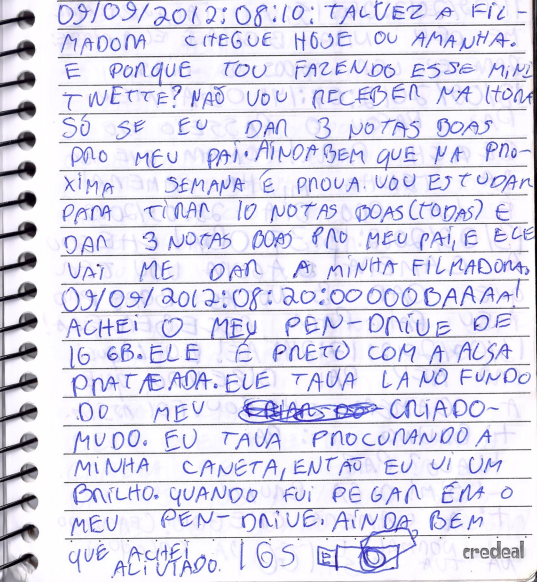 09/09/2012:08:10: TALVEZ A FIL-
MADORA CHEGUE HOJE OU AMANHA.
E PORQUE TOU FAZENDO ESSE MINI
TWETTE? NÃO VOU RECEBER NA HORA
SÓ SE EU DAR 3 NOTAS BOAS
PRO MEU PAI. AINDA BEM QUE NA PRO-
XIMA SEMANA É PROVA. VOU ESTUDAR
PARA TIRAR 10 NOTAS BOAS (TODAS) E
DAR 3 NOTAS BOAS PRO MEU PAI, E ELE
VAI ME DAR A MINHA FILMADORA.
09/09/2012:08:20:OOOOOBAAAA!
ACHEI O MEU PEN-DRIVE DE
16 GB. ELE É PRETO COM A ALSA
PRATEADA. ELE TAVA LA NO FUNDO
DO MEU CRIADO-
MUDO. EU TAVA PROCURANDO A
MINHA CANETA, ENTÃO EU VI UM
BRILHO. QUANDO FUI PEGAR ERA O
MEU PEN-DRIVE. AINDA BEM
QUE ACHEI. IGS credeal